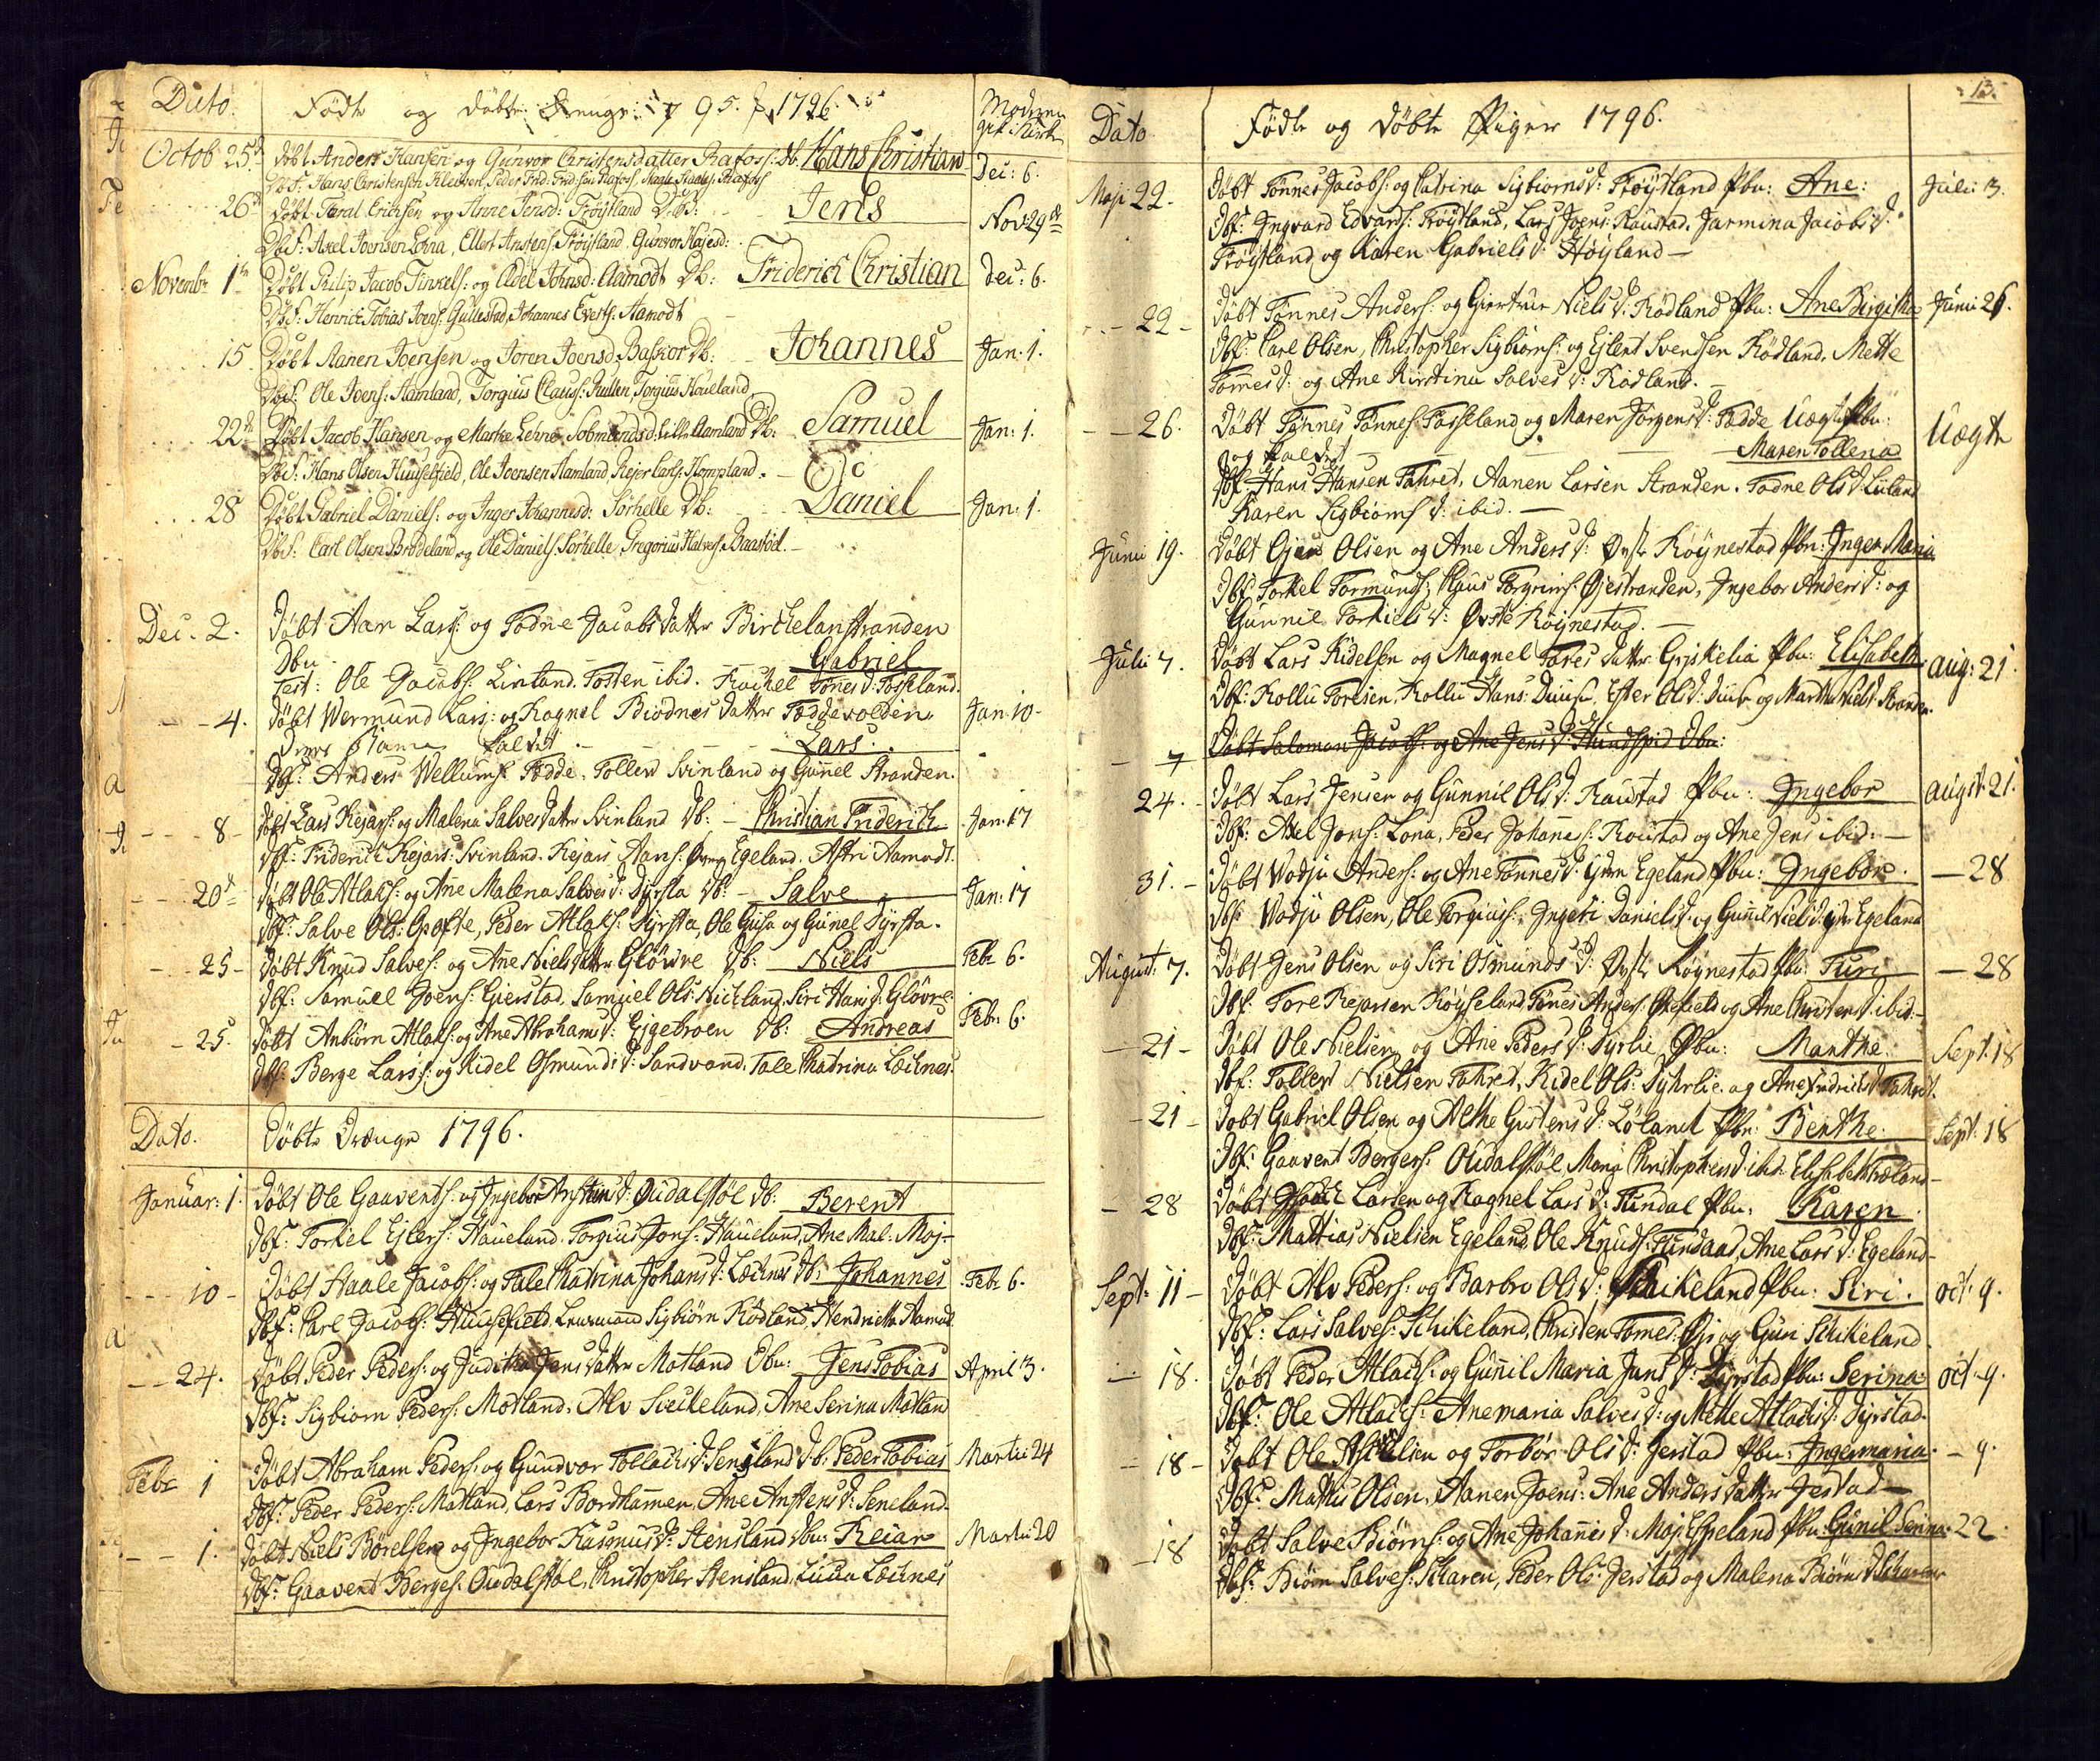 Dato. Fødte og døbte Drenge: 1795. & 1796. Moderen gik i Kirke
Octob 25de døbt Anders Hansen og Gunvor Christensdatter Rafoss: Db: Hans Christian Dec: 6.
Dbf: Hans Christensen Kleiven, Peder Frid: Rafoss
26de døbt Taral Erichsen og Anne Jensd: Frøÿsland Db: Jens Nov 29de
Dbf: Axel Joensen Lohna, Ellert Anstens: Frøÿsland Gunvor
Novembr 1te Døbt Philip Jacob Tinkels: og Adel Johnsd: Aamodt Db: Friderich Christian Dec: 6.
Dbf: Henrich Tobias Joens: Gullestad, Johannes Evests: Aamodt
15 Døbt Aanen Joensen og Joren Joensd. Baskor Db: Johannes Jan: 1.
Dbf: Ole Joens: Aamland, Torgius Claus: Torgius Haueland
22de Døbt Jacob Hansen og Marthe Lehne Lille Aamland Db: Samuel Jan: 1.
Dbf: Hans Olsen Huusefield, Ole Joensen Aamland Rejer Carls: Hompland.
28 Døbt Gabriel Daniels: og Inger Johannisd: Sørhelle Db: Daniel Jan: 1.
Dbf: Carl Olsen Brødeland og Ole Daniels: Sørhelle Gregorius Halvors: Baastøel.
Dec. 2. Døbt Aam Lars: og Todne Jacobsdatter Birckelanstranden
Dbn Gabriel
Test: Ole Jacobs: Lintand. Tosten ibid. Rachel Tønnesd: Fosseland.
4. Døbt Wermund Lars: og Ragnel Biodnes datter Feddevolden Jan 10
kaldet Lars.
Dbf: Anders Vellums: Fedde, Tollew Svinland og Gunnel Stranden.
8 døbt Lars Rejars: og Malena Salvesdatter Svinland Db: Christian Friderich Jan: 17
Dbf: Friderich Rejars: Svinland. Rejars Aans: Egeland. Astri Aamodt.
20de døbt Ole Atlaks: og Ane Malena Salvesd: Dyrsta Db: Salve Jan: 17
Dbf: Salve Ols: Opofte, Peder Atlaks: Dyrsta, Ole Gusa og Gunel Dyrsta.
25 døbt Knud Salves: og Ane Nielsdatter Gløvre Db: Niels Febr 6.
Dbf: Samuel Joens: Gierstad. Samuel Ols: Nickland, Siri Hansd: Gløvre.
25. døbt Anbiørn Atlaks: og Ane Abrahamsd: Eigebroen Db: Andreas Febr. 6.
Dbf: Berge Lars: og Kidel Osmundsd: Sandvand. Tale Chatrina Lødnes.
Dato. Døbte Drenge 1796.
Januar: 1. Døbt Ole Gaavents: og Ingebor Anstensd: Oudalstøl Db: Berent
Dbf: Torkel Ejlers: Haueland. Torgius Jons: Haueland, Ane Mal: Moj
10 Døbt Staale Jacobs: og Tale Chatrina Johansd: Lødnes Db: Johannes Febr 6.
Dbf: Carl Jacobs: Huusefield. Lensmand Sigbiørn Kødland, Hendricha Aamod
24. Døbt Peder Peders: og Juditha Jensdatter Motland Dbn: Jens Tobias April 3.
Dbf: Sigbiorn Peders: Motland. Alv Sieckeland, Ane Serina Motlan
Febr 1 døbt Abraham Peders: og Gundvor Tollachsd: Seneland Db: Peder Tobias Martii 24
Dbf: Peder Peders: Motland, Lars Bordhamen, Ane Anstensd: Seneland.
1. døbt Niels Børelsen og Ingebor Rasmusd: Stensland Dbn: Reiar Martii 20
Dbf: Gaavent Berges: Oudalstøl, Christopher Stensland, Lucia Lødnes
13.
Dato Fødte og døbte Piger 1796.
Maji 22. Døbt Tønnes Jacobs: og Catrina Sigbiornsd: Frøÿsland Pbn: Ane: Julii 3.
Dbf: Ingvard Edvards: Frøÿsland, Lars Joens: Raustad. Jarmina Jacobsd:
Frøÿsland og Karen Gabrielsd: Høyland
22 Døbt Tønnes Anders: og Giertrue Nielsd: Kødland Pbn: Ane Birgitha Junii 26.
Dbf: Carl Olsen, Christopher Sigbiørns: og Ejlert Svendsen Kødland, Mette
Tønnesd: og Ane Kirstina Salvesd: Kødland.
26. Døbt Tønnes Tønnes: Fosseland og Maren Jørgensd: Fedde Uægte Pbn: Uægte
og kaldet Maren Tollena
Dbf: Hans Hansen Fahret, Aanen Larsen Stranden. Todne Olsd: Liiland
Karen Sigbiornsd: ibid.
Junii 19. Døbt Ojus Olsen og Ane Andersd: Øvste Røynestad Pbn: Inger Maria
Dbf: Torkel Tormunds: Claus Torgrims: Øjestranden, Ingebor Andersd: og
Gunnil Torkielsd: Øvste Røynestad.
Julii 7. Døbt Lars Kidelsen og Magnel Toresdatter Griskelia Pbn: Elisabeth. Aug: 21
Dbf: Rollu Toresen. Rollu Hans: Duuse, Ester Olsd: Duuse og Marthe Stranden.
7 Døbt Salomon Jacobs: og Ane Jensd: Hundspid Dbn:
24. Døbt Lars Jensen og Gunnil Olsd: Raustad Pbn: Ingebor Augst: 21
Dbf: Axel Jons: Lona, Peder Johanes: Roustad og Ane Jens ibid:
31. Døbt Vodju Anders: og Ane Tønnesd: Egeland Pbn: Ingebor. 28
Dbf: Vodju Olsen, Ole Torgius: Ingeri Danielsd: og Gunnil Nielsd: Egeland
August: 7. Døbt Jens Olsen og Siri Osmundsd: Øvste Røynestad Pbn: Turi 28
Dbf: Tore Rejersen Røyseland, Tønes Anders: og Ane Christensd: ibid.
21 Døbt Ole Nielsen og Ane Pedersd: Dyrlie Pbn: Marthe. Sept. 18
Dbf: Tollew Nielsen Fahret, Kidel Ols: Dyhrlie. og Ane Fredrichsd: Fahret.
21 Døbt Gabriel Olsen og Alethe Gustensd: Løland Pbn: Berthe. Sept: 18
Dbf: Gaavent Bergers: Oudalstøl, Maria Christophersd: ibid: Elisabeth
28 Døbt Larsen og Ragnel Larsd: Flundal Pbn: Karen
Dbf: Mattias Nielsen Egeland, Ole Knuds: Ane Larsd: Egeland
Sept: 11 Døbt Alv Peders: og Barbro Olsd: Sieckeland Pbn: Siri. Oct: 9.
Dbf: Lars Salves: Schikeland, Christen Tomes: Øje og Guri Schikeland
18. Døbt Peder Atlachs: og Gunnil Maria Jansd: Dyrstad Pbn: Serina Oct: 9.
Dbf: Ole Atlachs: Anemaria Salvesd: og Mette Atlachsd: Dyrstad
18 Døbt Ole og Torbør Olsd: Jerstad Pbn: Ingermaria. 9.
Dbf: Mattis Olsen, Aanen Joens: Ane Andersdatter Jerstad
18 Døbt Salve Biørns: og Ane Johanisd: Moj Espeland Pbn: Gunil Serina. 22.
Dbf: Biørn Salves: Skaren, Peder Ols: Jerstad og Malena Biørnsd: